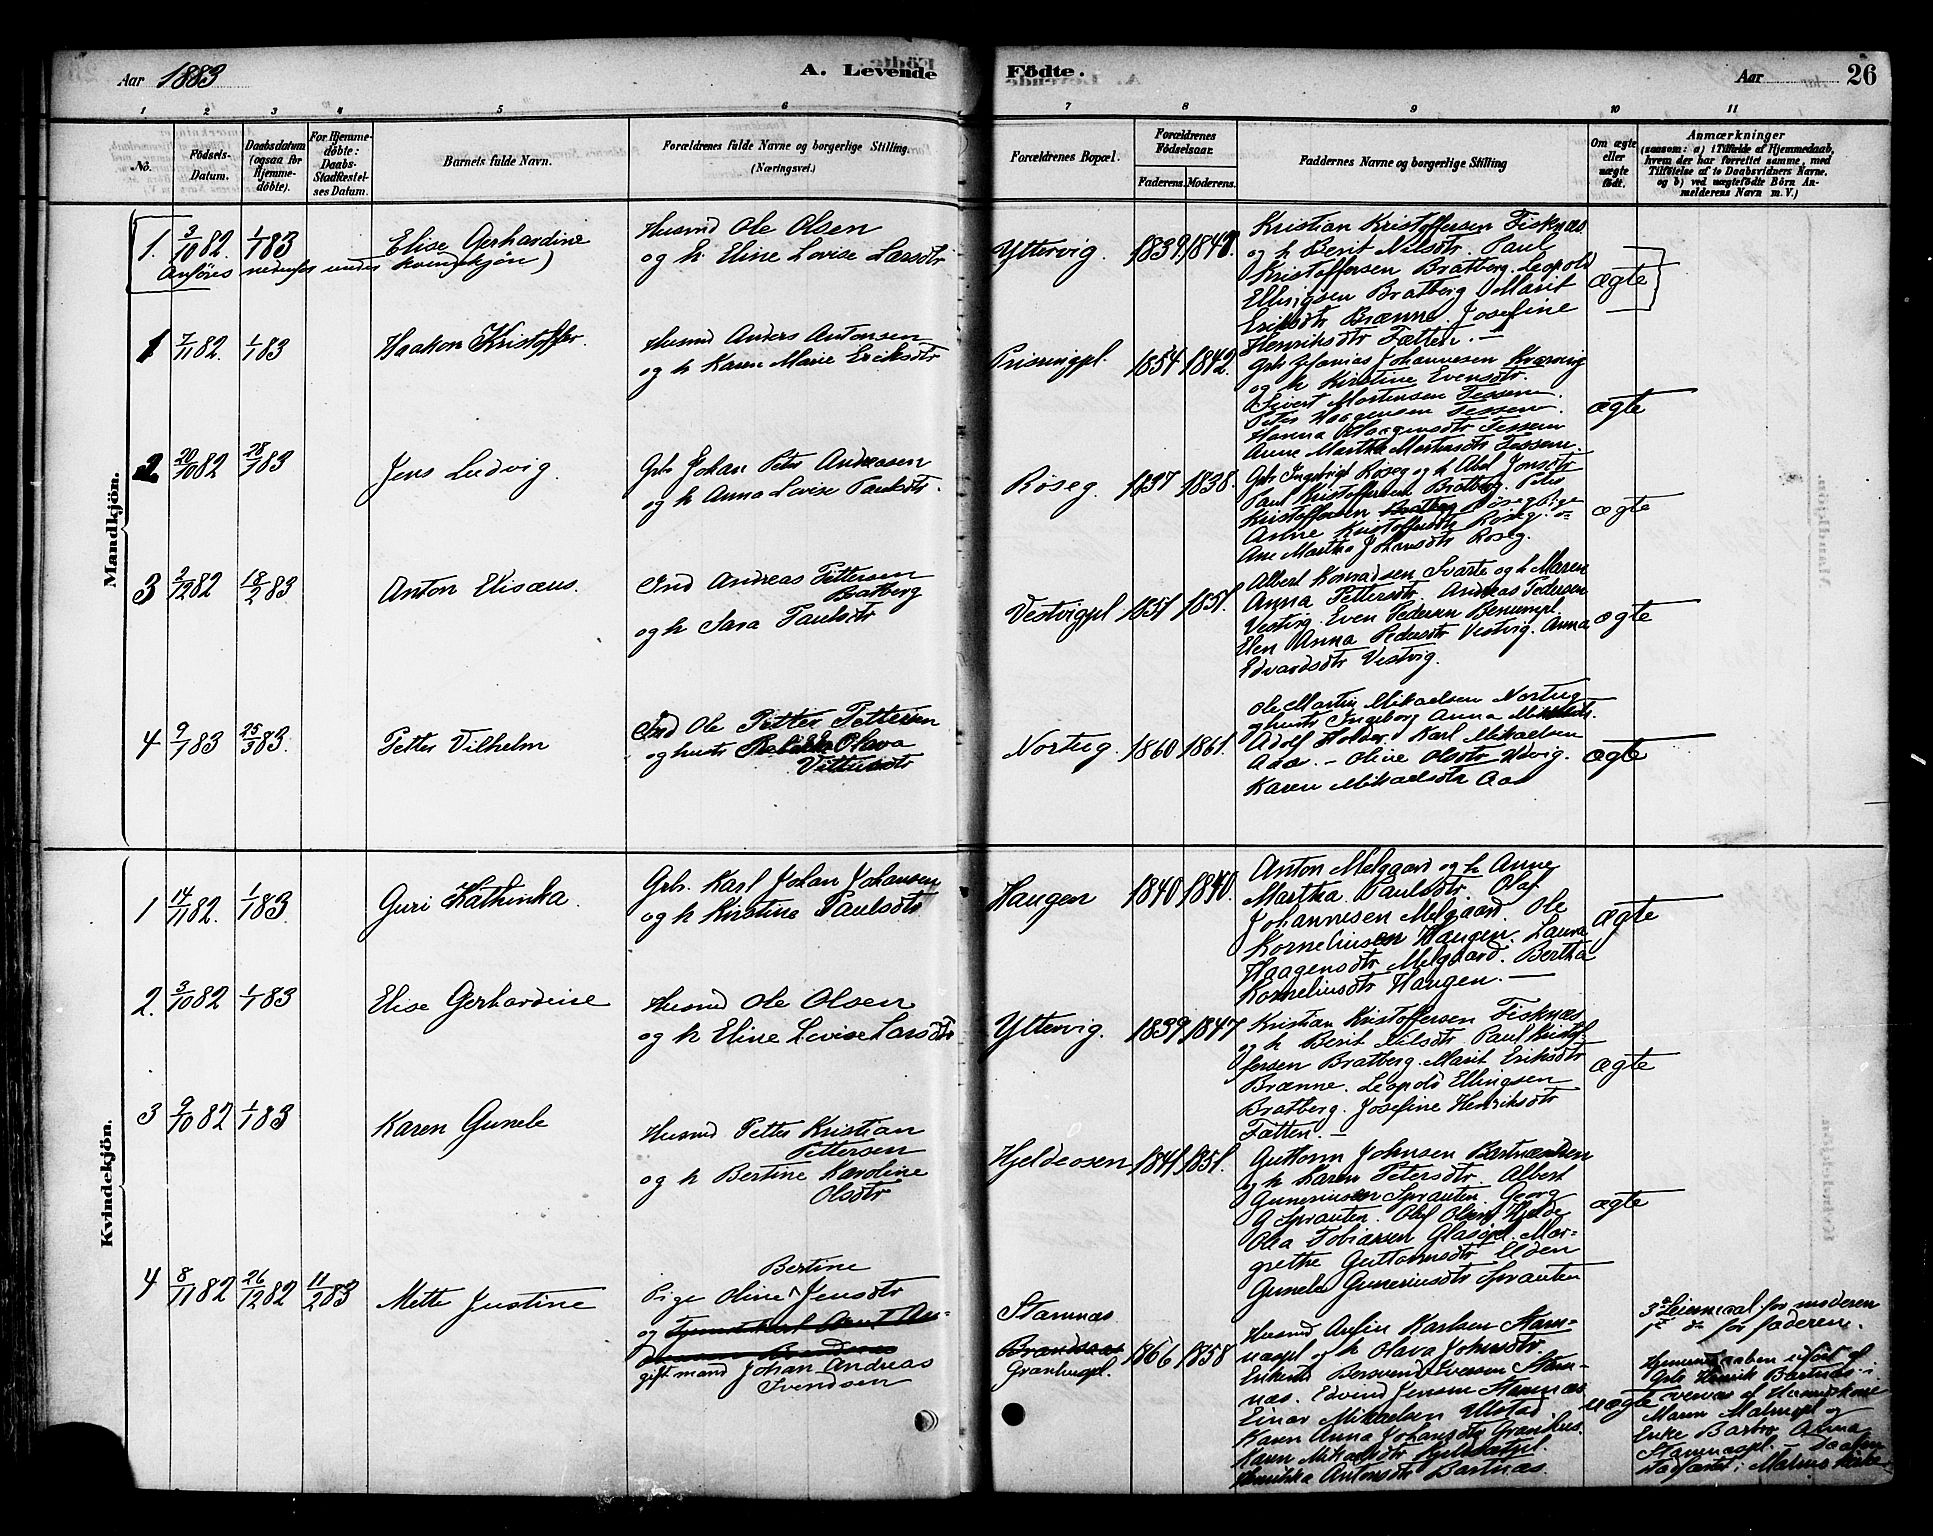 Aar 1883 A. Levende Födte. Aar 26
1 2 3 4 5 6 7 8 9 10 11
No. Födsels-Datum. Daabsdatum (ogsaa for Hjemmedöbte). For Hjemmedöbte: Daabs-Stadfæstelses Datum. Barnets fulde Navn. Forældrenes fulde Navne og borgerlige Stilling. (Næringsvei.) Forældrenes Bopæl. Forældrenes Födselsaar. Faderens. Moderens. Faddernes Navne og borgerlige Stilling Om ægte eller uægte födt. Anmærkninger (saasom: a) i Tilfælde af Hjemmedaab, hvem der har forrettet samme, med Tilföielse af to Daabsvidners Navne, og b) ved uægtefödte Börn Anmelderens Navn m. V.)
Mandkjön.
1. 3/10 82. 1/1 83 Elise Gerhardine Husmd Ole Olsen
og h. Eline Lovise Larsdtr Yttervig. 1839. 1847.
Anföres nedenfor under kvindekjön)
Kristian Kristoffersen Fisknæs
og h Berit Nilsdtr. Paul
Kristoffersen Bratberg. Leopold
Ellingsen Bratberg Marit
Eriksdtr Brænne. Josefine
Henriksdtr Fætten. —
ægte
1 7/11 82. 1/1 83 Haakon Kristoffer. Husmd Anders Antonsen
og h Karen Marie Eriksdtr 1854 1842.
Gbr Zefanias Johannesen Kværnvig
og h Kirstine Evensdtr.
Sivert Mortensen Tessem.
Peter Haagensen Tessem.
Hanna Haagensdtr Tessem
Anne Martha Mortensdtr Tessem
ægte
2 20/10 82 28/1 83 Jens Ludvig. Gbr Johan Peter Andreasen
og h Anna Lovise Paulsdtr. Röseg. 1837 1838.
Gbr Ingebrigt Roseg og h Abel Jonsdtr
Paul Kristoffersen Bratberg. Peter
Kristoffersen Röseg Pige
Anne Kristoffersdtr Röseg.
Ane Martha Johansdtr Roseg.
ægte
3 3/12 82 18/2 83 Anton Elisæus. Ind Andreas Pettersen
Bratberg
og h Sara Paulsdtr Vestvigpl 1851 1851.
Albert Konradsen Svarte og h Maren
Anna Pettersdtr. Andreas Pedersen
Vestvig. Even Pedersen
Elen Anna Pedersdtr Vestvig. Anna
Edvardsdtr Vestvig.
ægte
4 9/1 83 25/3 83. Petter Vilhelm Ind Ole Petter Pettersen
og hustr Olava Nortug. 1860 1861.
Ole Martin Mikaelsen Nortug
og hustr Ingeborg Anna
Adolf Karl Mikaelsen
Aaa. — Oline Olsdtr
Karen Mikaelsdtr Aas
ægte
Kvindekjön.
1 14/11 82. 1/1 83. Guri Kathinka. Gbr. Karl Johan Johansen
og h Kirstine Paulsdtr Haugen 1840 1840.
Anton Melgaard og h Anne
Martha Paulsdtr. Olaf
Johannesen Melgaard. Ole
Korneliusen Haugen. Laura
Haagensdtr Melgaard. Bertha
Korneliusdtr Haugen. —
ægte
2. 3/10 82 1/1 83 Elise Gerhardine Husmd Ole Olsen
og h Eline Lovise Larsdtr Yttervig. 1839 1847
Kristian Kristoffersen Fisknæs
og h Berit Nilsdtr. Paul Kristof-
fersen Bratberg. Marit Eriksdtr
Brænne. Leopold Ellingsen
Bratberg. Josefine Henriksdtr
Fætten. —
ægte
3 9/10 82 1/1 83 Karen Gunele Husmd Petter Kristian
Pettersen
og h Bertine Karoline
Olsdtr Hjeldeosen 1841 1851.
Guttorm Johnsen Bartnæsåsen
og h Karen Petersdtr. Albert
Guneriusen Sprauten. Georg
G Sprauten. Olef Olsen Hjelde
Olea Tobiassen Glasöpl. Mar-
grethe Guttormsdtr Elden
Gunela Guneriusdtr Sprauten
ægte
4 8/11 82 26/12 82 11/2 83 Mette Justine Pige Oline Bertine Jensdtr
og
gift mand Johan Andreas
Svendsen
Stamnas
Granhugpl. 1866 1858
Husmd Anfin Karlsen Stam-
naspl og h Olava Johnsdtr.
Enkemd Bersvend Iversen Stam-
nas. Edvind Jensen Stamnas
Einar Mikaelsen Ulstad
Karen Anna Johansdtr Granhus.
Karen Mikalsdtr
Antonsdtr Bartnæs.
uægte
3die Leiermaal for moderen
1ste do for faderen.
Hjemmedaaben udfört af
Gbr Henrik Bartnas i
overvær af Husmdskone
Maren Malmopl og
Enke Barbro Anna
Stamnaspl. — Daaben
stadfæstet i Malmo kirke